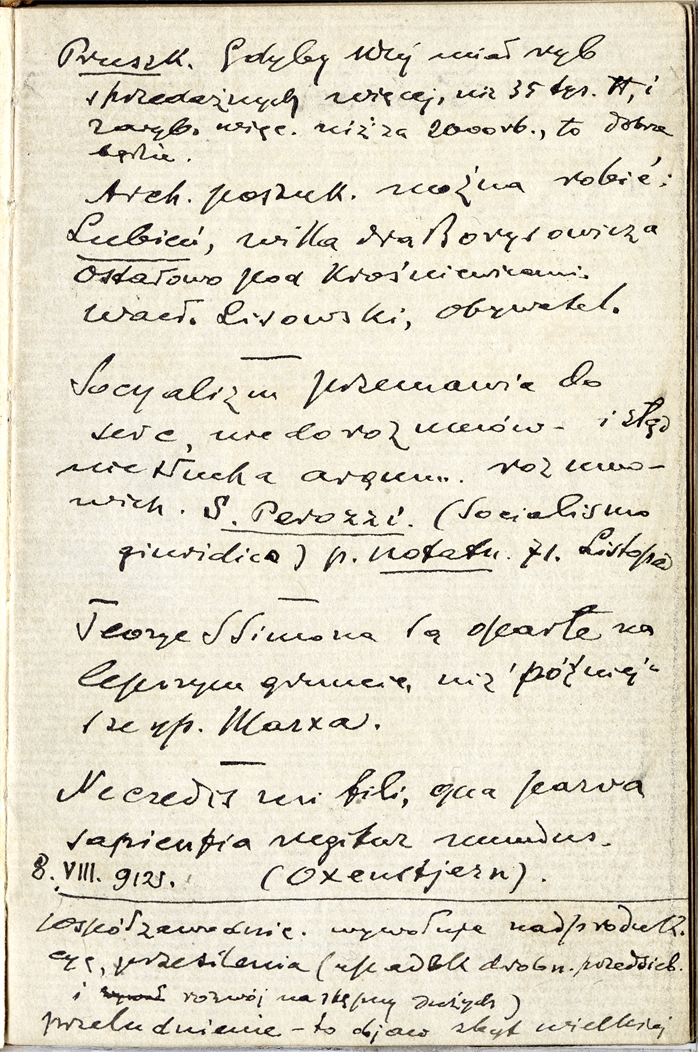 Pruszk. Gdyby Wuj miał ryb
sprzedażnych więcej, niż 35 tys. ℔, i
zaryb. więc. niż za 2000 rb., to dobrze
będzie.
Arch. poszuk. można robić:
Lubień, willa dra Borysowicza
Ostałowo pod Krośniewicami.
Wacł. Lisowski, obywatel.
Socyalizm przemawia do
serc, nie do rozumów – i stąd
nie słucha argum. rozumo-
wych. S. Perozzi. (Socialismo
giuridico) p. notatn. 71. Listopad
Teorye S Simona są oparte na
lepszym gruncie, niż później-
sze np. Marxa.
Nescredis mi fili, qua parva
sapientia regitur mundus.
8. VIII. 912s. (Oxenstjern).
współzawodnic. wywołuje nadproduk-
cyę, przesilenia (upadek drobn. przedsięb.
i rozwój następny dużych)
przeludnienie – to objaw zbyt wielkiej